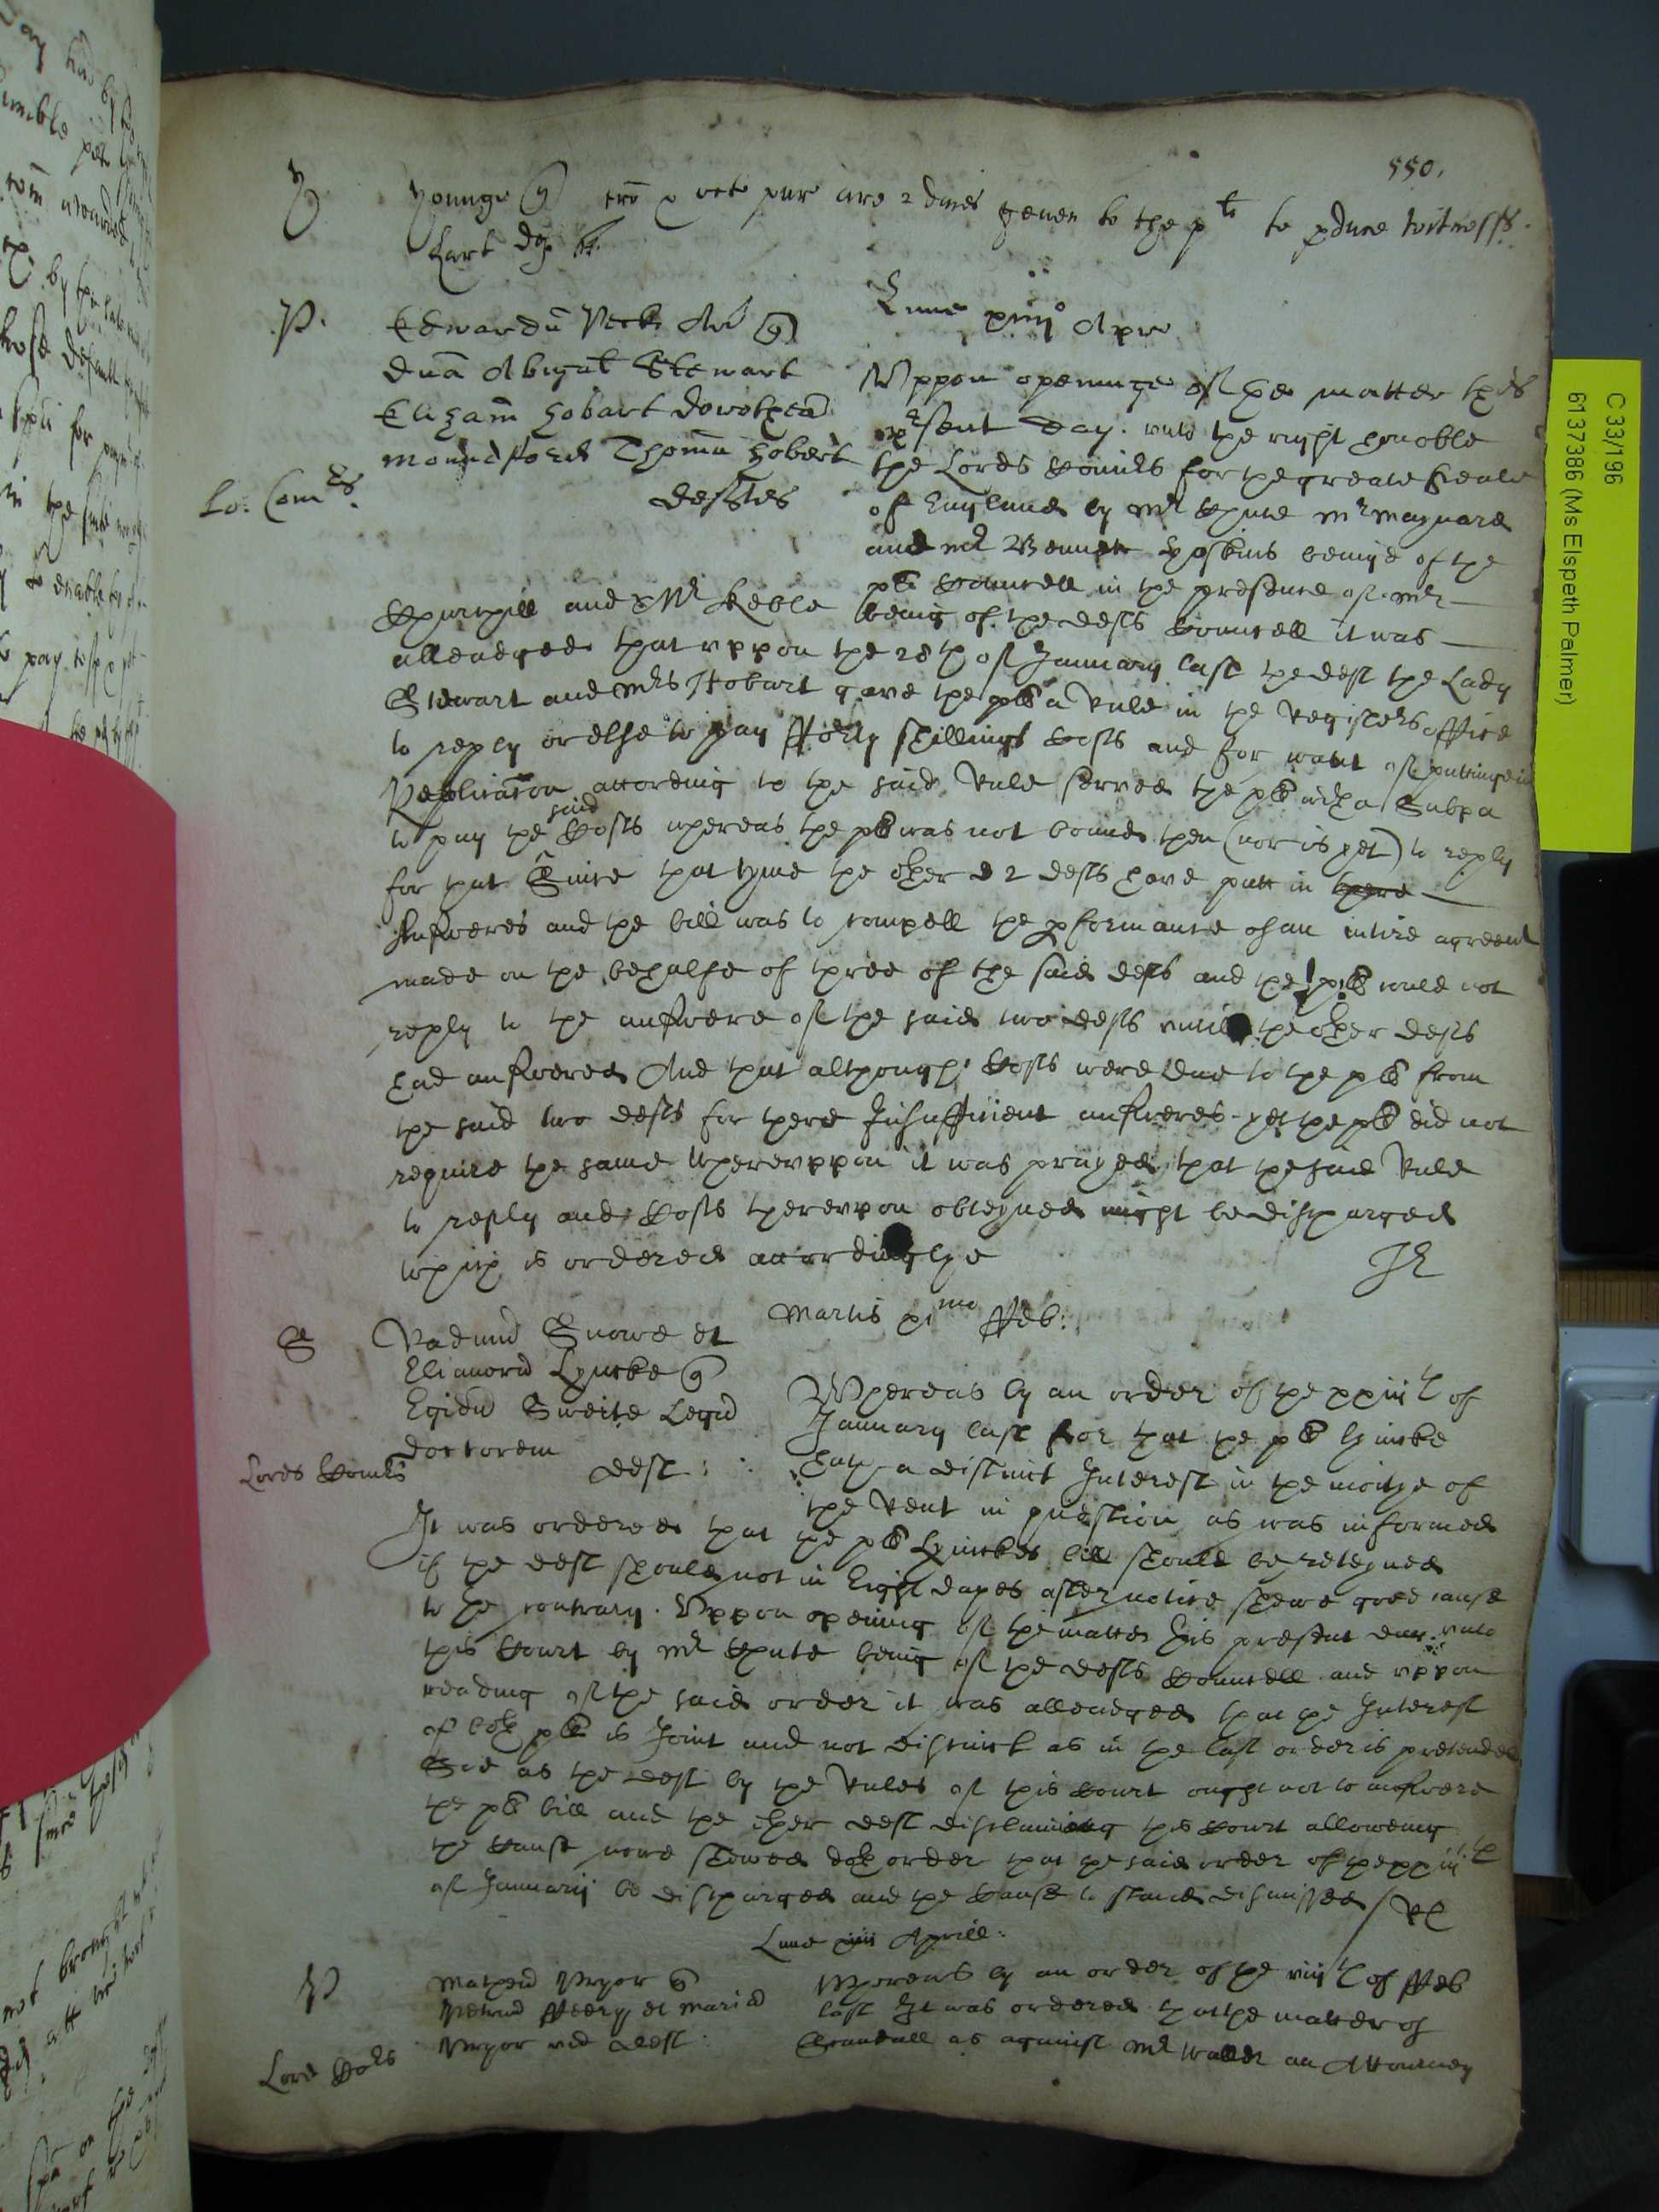 550.
Y Younge q̃ ꝑ oct pur are 2 daies geuen to the plt to pduce witnesses.
Cart def
Lune xiiijo Apr
P. Edwardu Peck Ar q̃
Duã Abigal Stewart
Elizam Hobart Dorotheã
Moundford Thomã Hobert
defdtes
Lo: Comrs.
Vppon openinge of the matter this
prsent day. vnto the right honoble
the Lords Comrs for the greate Seale
of England by Mr Chute Mr Maynard
and Mr Bennett Hoskins beinge of the
plt Councell in the presence of Mr
Churchill and Mr Keble being of the defts Councell it was
alleadged that vppon the 28th of January last the deft the Lady
Stewart and Mrs Hobart gave the plt a Rule in the Registers office
to reply or else to pay fforty shillings Costs and for want of puttinge in
Replicacon according to the said Rule served the plt with a Subpa
to pay the said Costs whereas the plt was not bound then (nor is yet) to reply
for that Since that tyme the other 2 defts have putt in there
Answeres and the bill was to compell the pformance of an intire agreemt
made on the behalfe of three of the said defts and the plt could not
reply to the answere of the said two defts vntill the other defts
had answered And that although Costs were due to the plt from
the said two defts for there Insufficient answeres yet the plt did not
require the same Wherevppon it was prayed that the said Rule
to reply and Costs therevpon obteyned might be discharged
which is ordered accordinglye
Martis ximo ffeb:
S Radum Snowe et
Elianora Lyncke q̃
Egidiu Sweite Legu
doctorem
deft:
Lords Comrs
Whereas by an order of the xxiijth of
January last for that the plt Lyncke
hath a distinct Interest in the moitye of
the Rent in question as was informed
It was ordered that the plt Lynckes bill should be reteyned
if the deft should not in Eight dayes after notice shewe good cause
to the contrary. Vppon opening of the matter this present day vnto
this Court by Mr Chute being of the defts Councell and vppon
reading of the said order it was alleadged that the Interest
of both plt is Joint and not distinct as in the last order is pretended
Soe as the deft by the Rules of this Court ought not to answere
the plt bill and the other deft disclaiming this Court allowing
the Cause nowe shewed doth order that the said order of the xxiijth
of January be discharged and the Cause to stand dismissed / RL
Lune xiiij Aprill:
P Matheu Pryor q̃
Petrud ffeery et Maria
Pryor vid deft:
Lord Cors
Whereas by an order of the viijth of ffeb
last It was ordered that the matter of
Scandall as against Mr Waller an Attourney
C 33/196
6137386 (Ms Elspeth Palmer)